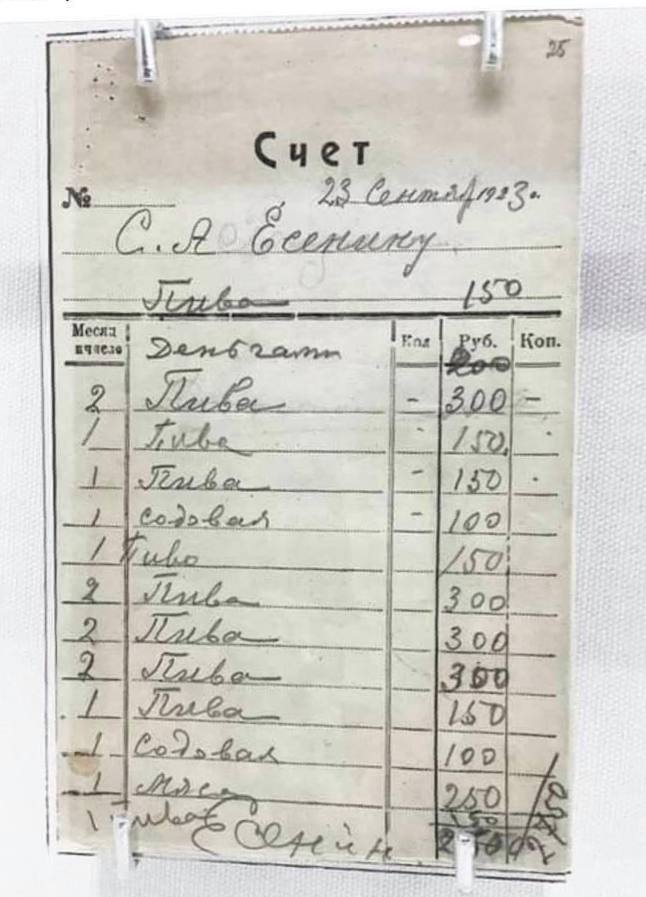 25
Счет
№ 23 Сентяб 1923 г.
С. А Есенину
Пива 150
Месяц и число Деньгами Кол Руб. Коп.
200
2 Пива - 300 -
1 Пива - 150
1 Пива - 150
1 содовая - 100
1 Пиво 150
2 Пива 300
2 Пива 300
2 Пива 300
1 Пива 150
1 Содовая 100
1 Мясо 250
1 Пива 150
Есанин